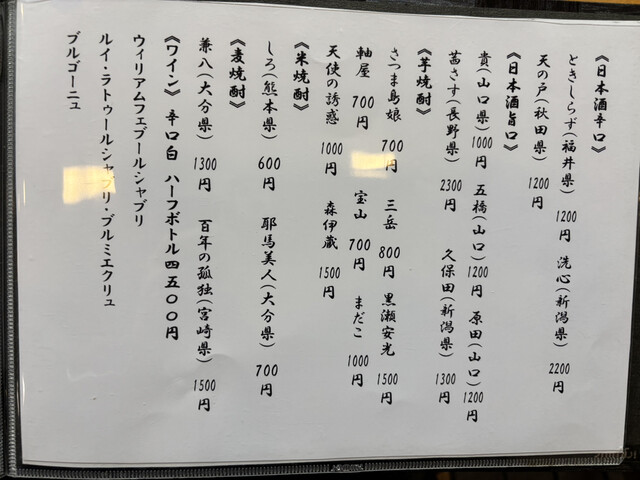 《日本酒辛口》
ときしらず(福井県) 1200円 洗心(新潟県) 2200円
天の戸(秋田県) 1200円
《日本酒旨口》
貴(山口県) 1000円 五橋(山口) 1200円 原田(山口) 1200円
茜さす(長野県) 2300円 久保田(新潟県) 1300円
《芋焼酎》
さつま島娘 700円 三岳 800円 黒瀬安光 1500円
軸屋 700円 宝山 700円 まだこ 1000円
天使の誘惑 1000円 森伊蔵 1500円
《米焼酎》
しろ(熊本県) 600円 耶馬美人(大分県) 700円
《麦焼酎》
兼八(大分県) 1300円 百年の孤独(宮崎県) 1500円
《ワイン》 辛口白 ハーフボトル四五〇〇円
ウィリアムフェブールシャブリ
ルイ・ラトゥールシャブリ・プルミエクリュ
ブルゴーニュ